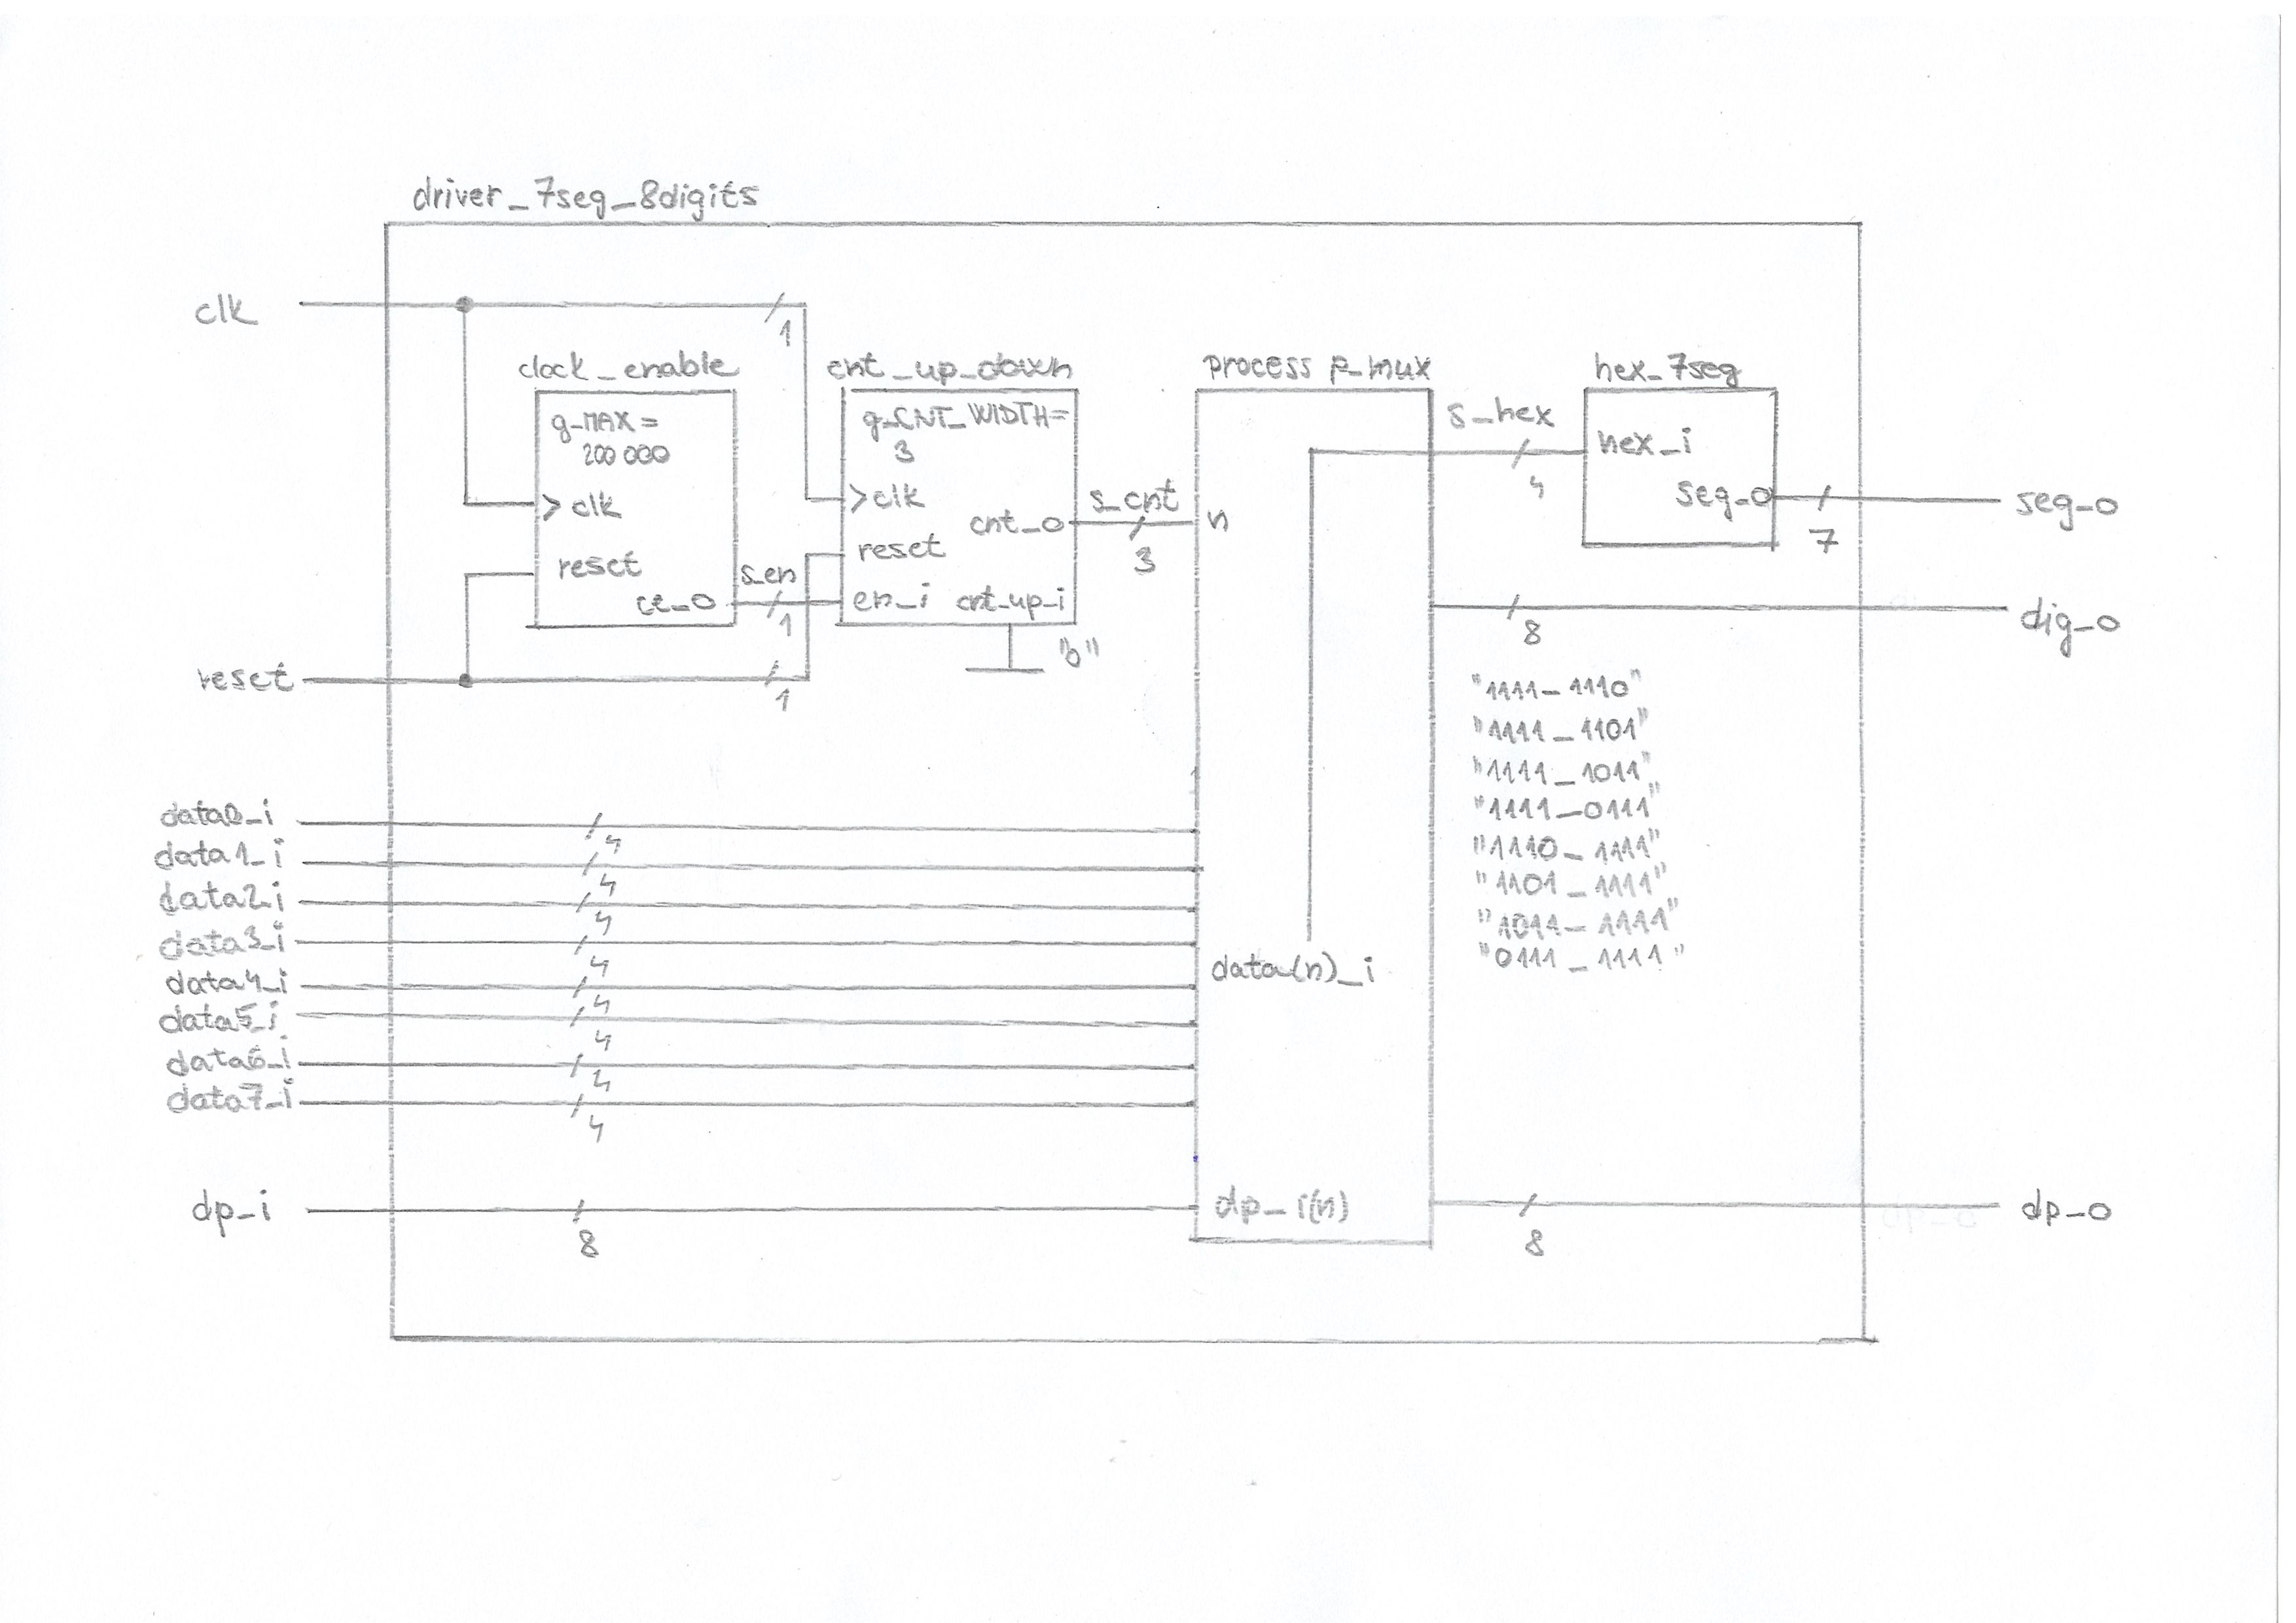 driver_7seg_8digits
clk
1
clock_enable
g_MAX =
200 000
>clk
reset
ce_o
s_en
1
cnt_up_down
g_CNT_WIDTH=
3
>clk
reset
en_i
cnt_up_i
cnt_o
"0"
s_cnt
3
reset
1
process p_mux
n
data(n)_i
dp_i(n)
s_hex
4
hex_7seg
hex_i
seg_o
7
seg_o
8
dig_o
"1111_1110"
"1111_1101"
"1111_1011"
"1111_0111"
"1110_1111"
"1101_1111"
"1011_1111"
"0111_1111"
data0_i
4
data1_i
4
data2_i
4
data3_i
4
data4_i
4
data5_i
4
data6_i
4
data7_i
4
dp_i
8
8
dp_o